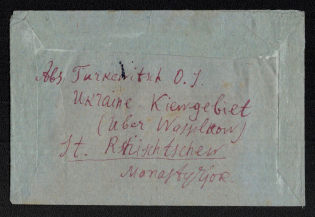 Abs Turkewitsch O. J.
Ukraine - Kiewgebiet
(über Wassilkow)
St. Rshischtschew
Monastyrsk